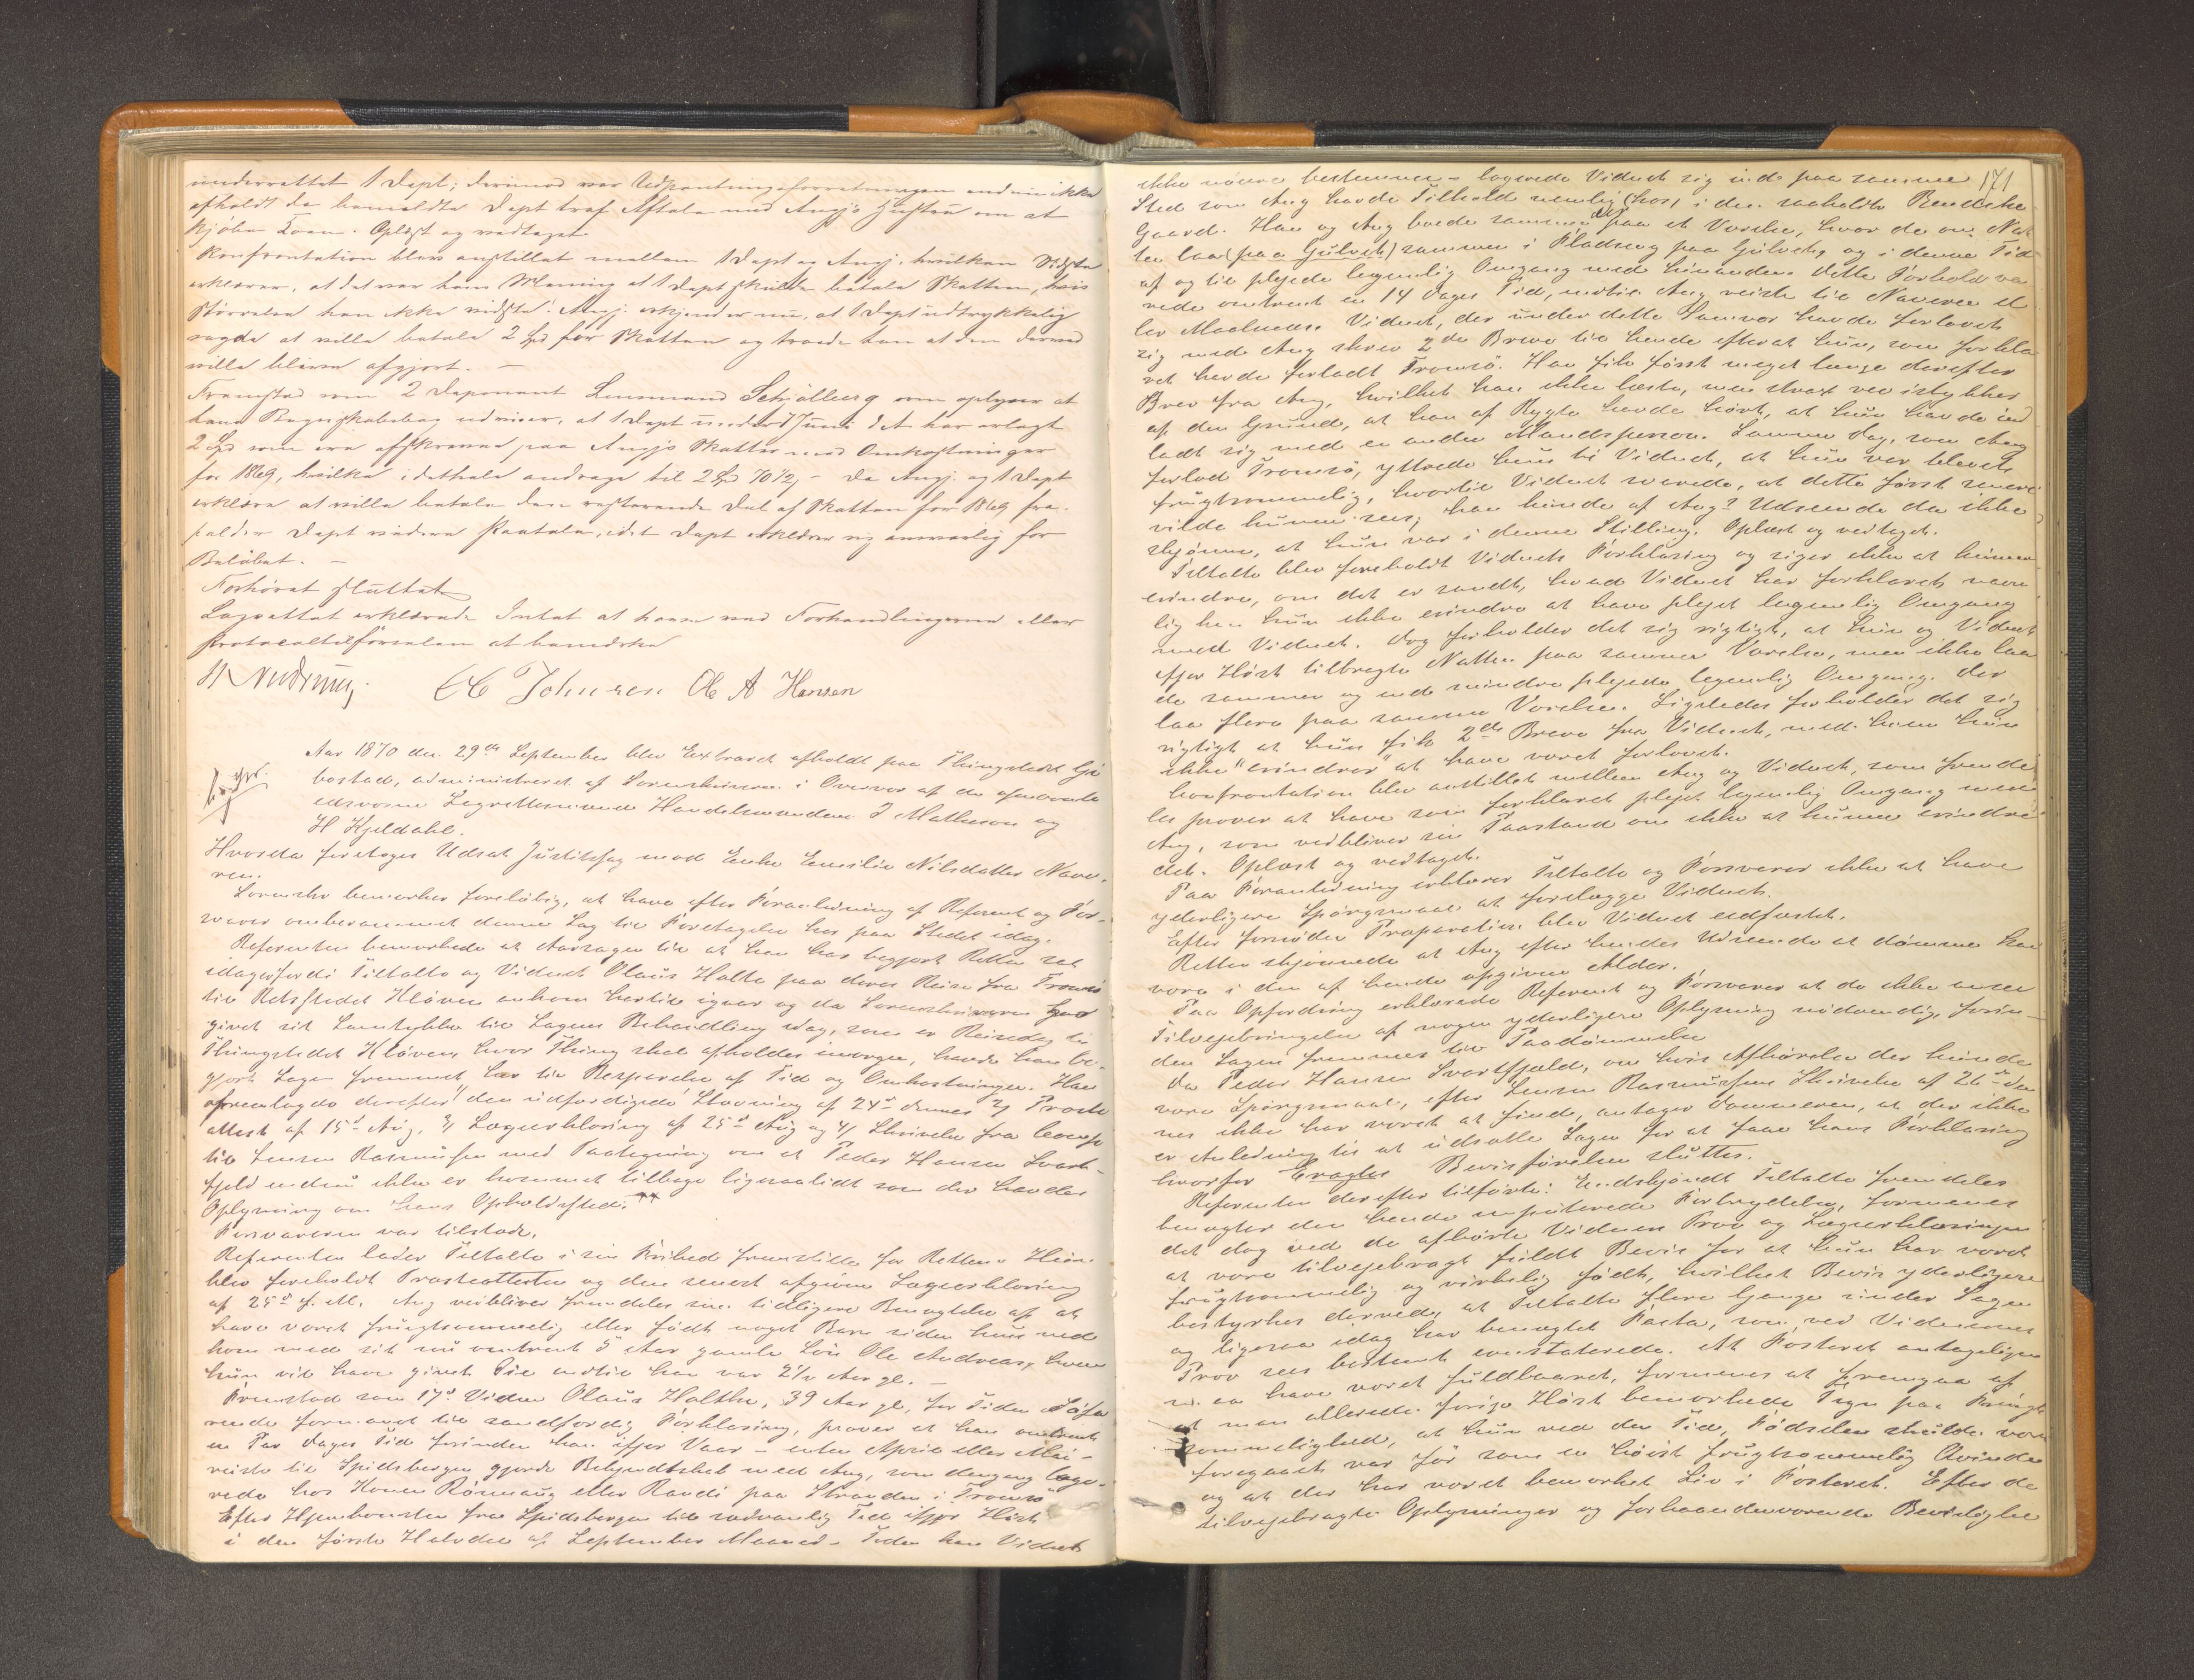 underrettet 1 Dept; derimod var Udpantningsforretningen endnu ikke
afholdt da bemeldte Dept traf Aftale med Angjs Hustru om at
kjøbe Koen. Oplæst og vedtaget.
Konfrontation blev anstillet mellem 1 Dept og Angj. hvilken Sidste
erklærer, at det var hans Mening at 1 Dept skulde betale Skatten, hvis
Størrelse han ikke vidste. Angj. erkjender nu, at 1 Dept udtrykkelig
sagde at ville betale 2 Spd for Skatten og troede han at den dermed
ville blive afgjort. –
Fremstod som 2 Deponent Lensmand Schjølberg som oplyser at
hans Regnskabsbog udviser, at 1 Dept under 17 Juni d A har erlagt
2 Spd som ere afskrevne paa Angjs Skatter med Omkostninger
for 1869, hvilke i det hele androge til 2 Spd 70 1/2 – Da Angj. og 1 Dept
erklære at ville betale den resterende Del af Skatten for 1869 fra-
falder Dept videre Paatale, idet Dept erklærer sig ansvarlig for
Beløbet. –
Forhøret sluttet
Lagrettet erklærede Intet at have ved Forhandlingerne eller
Protocoltilførselen at bemærke
Johnsen Ole A Hansen
Aar 1870 den 29de September blev Extraret afholdt paa Thingstedet Gi
bostad, administreret af Sorenskriveren i Overvær af de opnævnte
edsvorne Lagrettesmænd Handelsmændene J Mathesen og
H Kjeldahl.
Hvorda foretoges Udsat Justitssag mod Enke Emilie Nilsdatter Nave-
ren.
Sorenskr bemærker foreløbig, at have efter Foranledning af Referent og For-
svarer omberammet denne Sag til Foretagelse her paa Stedet idag.
Referenten bemærkede at Aarsagen til at han har begjært Retten sat
idag er fordi Tiltalte og Vidnet Olaus Holte paa deres Reise fra Tromsø
til Retsstedet Kløven ankom hertil igaar og da Sorenskriveren har
givet sit Samtykke til Sagens Behandling idag, som er Reisedag til
Thingstedet Kløven, hvor Thing skal afholdes imorgen, havde han be-
gjært Sagen fremmet her til Besparelse af Tid og Omkostninger. Han
fremlagde derefter den udfærdigede Stævning af 24de dennes 2/ Præste
attest af 15de Aug. 3/ Lægeerklæring af 25de Aug og 4/ Skrivelse fra
til Lensm Rasmussen med Paategning om at Peder Hansen Svart-
fjeld endnu ikke er kommet tilbage ligesaalidt som der havdes
Oplysning om hans Opholdssted.
Forsvareren var tilstede.
Referenten lader Tiltalte i sin Frihed fremstille for Retten. Hun
blev foreholdt Præsteattesten og den senest afgivne Lægeerklæring
af 25de f. M. Ang vedbliver fremdeles sin tidligere Benægtelse af at
have været frugtsommelig eller født noget Barn siden hun ned
kom med sit nu omtrent 5 Aar gamle Søn Ole Andreas, hvem
hun vil have givet Die indtil han var 2 1/2 Aar gl. –
Fremstod som 17de Vidne Olaus Holthe, 39 Aar gl, for Tiden Søfa
rende formanet til sandfærdig Forklaring, prover at han omtrent
en Par Dages Tid forinden han ifjor Vaar – enten April eller Mai –
reiste til Spidsbergen gjorde Bekjendtskab med Ang, som dengang loge-
rede hos Konen Rønnaug eller Randi paa Stranden i Tromsø
Efter Hjemkomsten fra Spidsbergen til sædvanlig Tid ifjor Høst
i den første Halvdel af September Maaned – Tiden kan Vidnet
171
ikke nøiere bestemme – logerede Vidnet sig ind paa samme
Sted som Ang havde Tilhold nemlig (hos) i den saakaldte Bendiche
Gaard. Han og Ang boede sammen paa et Værelse, hvor de om Nat
ten laa (paa Gulvet) sammen i Fladseng paa Gulvet, og i denne Tid
af og til plejede legemlig Omgang med hinanden. Dette Forhold va
rede omtrent en 14 Dages Tid, indtil Ang reiste til Naveren el
ler Maalsnes. Vidnet, der under dette Samvær havde forlovet
sig med Ang skrev 2de Breve til hende efterat hun, som forkla
ret havde forladt Tromsø. Han fik først meget længe derefter
Brev fra Ang, hvilket han ikke læste, men strax rev istykker
af den Grund, at han af Rygte havde hørt, at hun havde ind
ladt sig med en anden Mandsperson. Samme Dag, som Ang
forlod Tromsø, yttrede hun til Vidnet, at hun var bleven
frugtsommelig, hvortil Vidnet svarede, at dette først senere
vilde kunne sees; han kunde af Angs Udseende da ikke
skjønne, at hun var i denne Stilling. Oplæst og vedtaget.
Tiltalte blev foreholdt Vidnets Forklaring og siger ikke at kunne
erindre, om det er sandt, hvad Vidnet har forklaret navn
lig kan hun ikke erindre at have plejet legemlig Omgang
med Vidnet. Dog forholder det sig rigtigt, at hun og Vidnet
ifjor Høst tilbragte Natten paa samme Værelse, men ikke laa
de sammen og end mindre plejede legemlig Omgang. Der
laa flere paa samme Værelse. Ligeledes forholder det sig
rigtigt at hun fik 2de Breve fra Vidnet, med hvem hun
ikke "erindrer" at have været forlovet.
Konfrontation blev anstillet mellem Ang og Vidnet, som fremde
les prover at have som forklaret plejet legemlig Omgang med
Ang, som vedbliver sin Paastand om ikke at kunne erindre
det. Oplæst og vedtaget.
Paa Foranledning erklærer Tiltalte og Forsvarer ikke at have
yderligere Spørgsmaal at forelægge Vidnet.
Efter fornøden Præparation blev Vidnet eedfæstet.
Retten skjønnede at Ang efter hendes Udseende at dømme kan
være i den af hende opgivne Alder.
Paa Opfordring erklærede Referent og Forsvarer at de ikke anser
Tilvejebringelse af nogen yderligere Oplysning nødvendig, forin-
den Sagen fremmes til Paadømmelse
Da Peder Hansen Svartfjeld, om hvis Afhørelse der kunde
være Spørgsmaal, efter Lensm Rasmussens Skrivelse af 26de den
nes ikke har været at finde, antager Dommeren, at der ikke
er Anledning til at udsætte Sagen for at faae hans Forklaring
hvorfor Eragtes Bevisførelsen sluttes.
Referenten derefter tilførte: Endskjøndt Tiltalte fremdeles
benægter den hende imputerede Forbrydelse, formenes
det dog ved de afhørte Vidners Prov og Lægeerklæringen
at være tilvejebragt fuldt Bevis for at hun har været
frugtsommelig og virkelig født, hvilket Bevis yderligere
bestyrkes derved, at Tiltalte flere Gange under Sagen
og ligesaa idag har benægtet Facta, som ved Vidnernes
Prov sees bestemt constaterede. At Fosteret antageligen
maa have været fuldbaaret, formenes at fremgaa af
at man allerede forige Høst bemærkede Tegn paa Frugt
sommelighed, at hun ved den Tid, Fødselen skulde være
foregaaet var før som en høist frugtsommelig Qvinde
og at der har været bemærket Liv i Fosteret. Efter de
tilvejebragte Oplysninger og forhaandenværende Bevisligheder